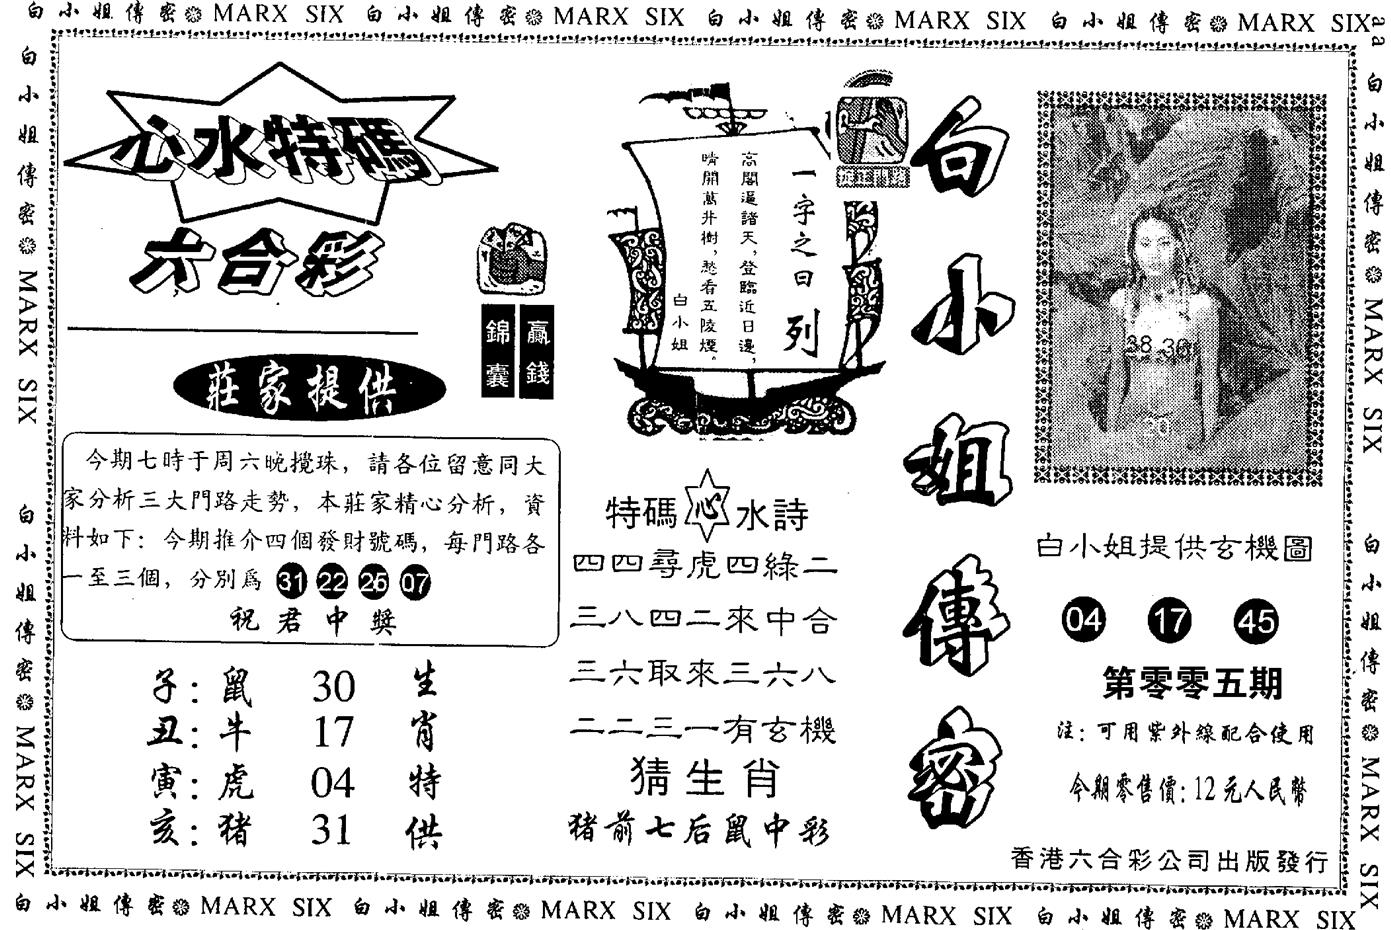 白小姐傳密 MARX SIX 白小姐傳密 MARX SIX 白小姐傳密 MARX SIX 白小姐傳密 MARX SIX
白小姐傳密 MARX SIX
白小姐傳密 MARX SIX
心水特碼
六合彩
錦囊
贏錢
莊家提供
今期七時于周六晚攪珠，請各位留意同大
家分析三大門路走勢，本莊家精心分析，資
料如下：今期推介四個發財號碼，每門路各
一至三個，分別爲 31 22 26 07
祝君中獎
子：鼠 30 生
丑：牛 17 肖
寅：虎 04 特
亥：猪 31 供
一字之曰 列
高閣逼諸天，登臨近日邊，
晴開萬井樹，愁看五陵煙。
白小姐
特碼心水詩
四四尋虎四綠二
三八四二來中合
三六取來三六八
二二三一有玄機
猜生肖
猪前七后鼠中彩
白小姐傳密
38 36
20
白小姐提供玄機圖
04 17 45
第零零五期
注：可用紫外線配合使用
今期零售價：12元人民幣
香港六合彩公司出版發行
aa
白小姐傳密 MARX SIX
白小姐傳密 MARX SIX
白小姐傳密 MARX SIX 白小姐傳密 MARX SIX 白小姐傳密 MARX SIX 白小姐傳密 MARX SIX